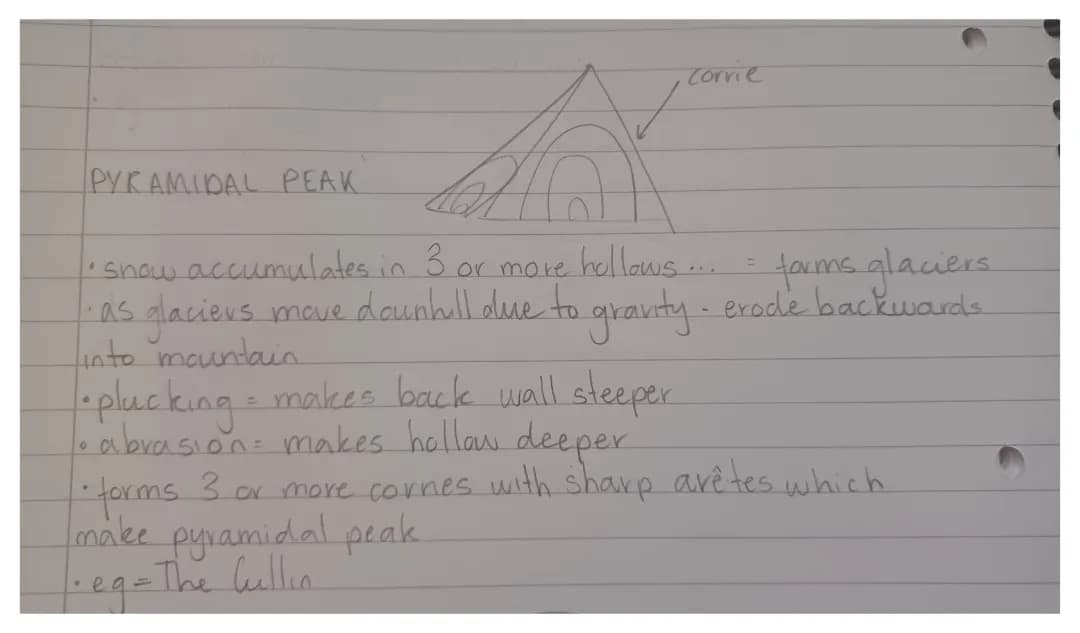 corrie
PYRAMIDAL PEAK
• snow accumulates in 3 or more hollows... = forms glaciers
• as glaciers move downhill due to gravity - erode backwards
into mountain
• plucking = makes back wall steeper
• abrasion = makes hollow deeper
• forms 3 or more corries with sharp arêtes which
make pyramidal peak
• eg = The Cullin